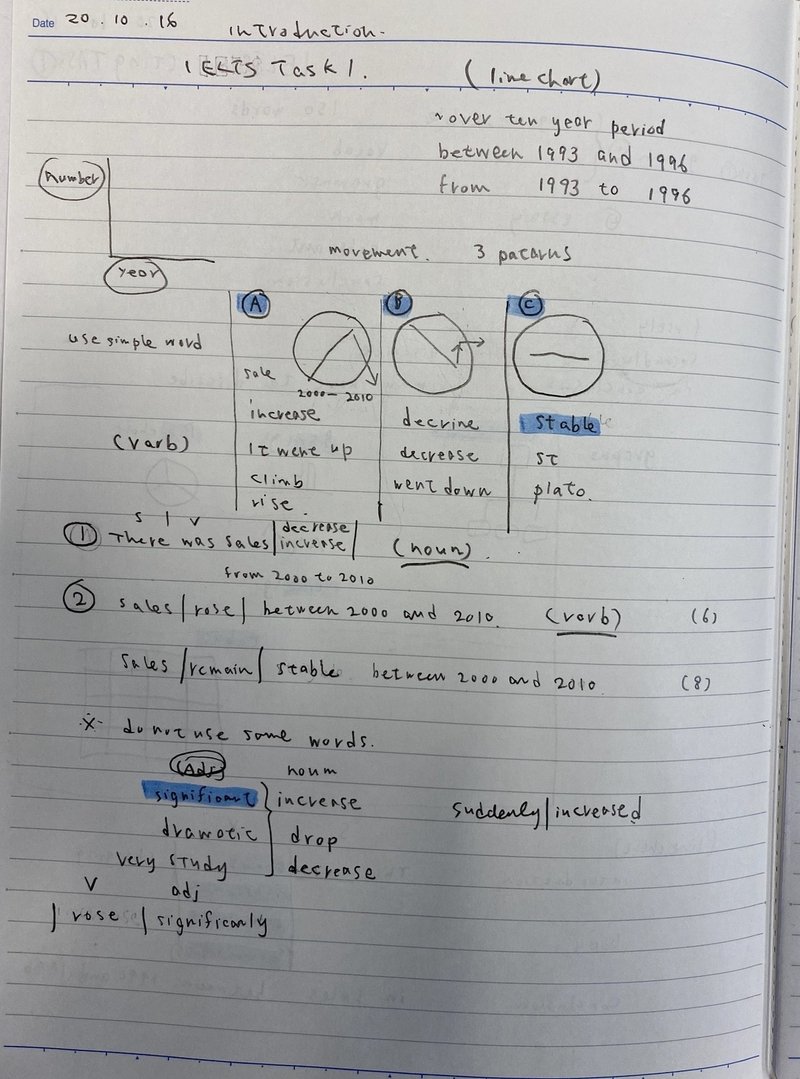 Date 20.10.16
introduction-
IELTS Task 1. (line chart)
~over ten year period
between 1993 and 1996
from 1993 to 1996
number
year
movement. 3 patarns
A B C
use simple word
sale
2000-2010
increase decrine stable
(varb) It went up decrease st
climb went down plato.
rise.
S | V
① There was sales | decrease
increase | (noun).
from 2000 to 2010
② sales | rose | between 2000 and 2010. (varb) (6)
sales | remain | stable between 2000 and 2010. (8)
※ do not use some words.
(Adj) noum
significant increase suddenly | increased
dramatic drop
very study decrease
V adj
| rose | significanly